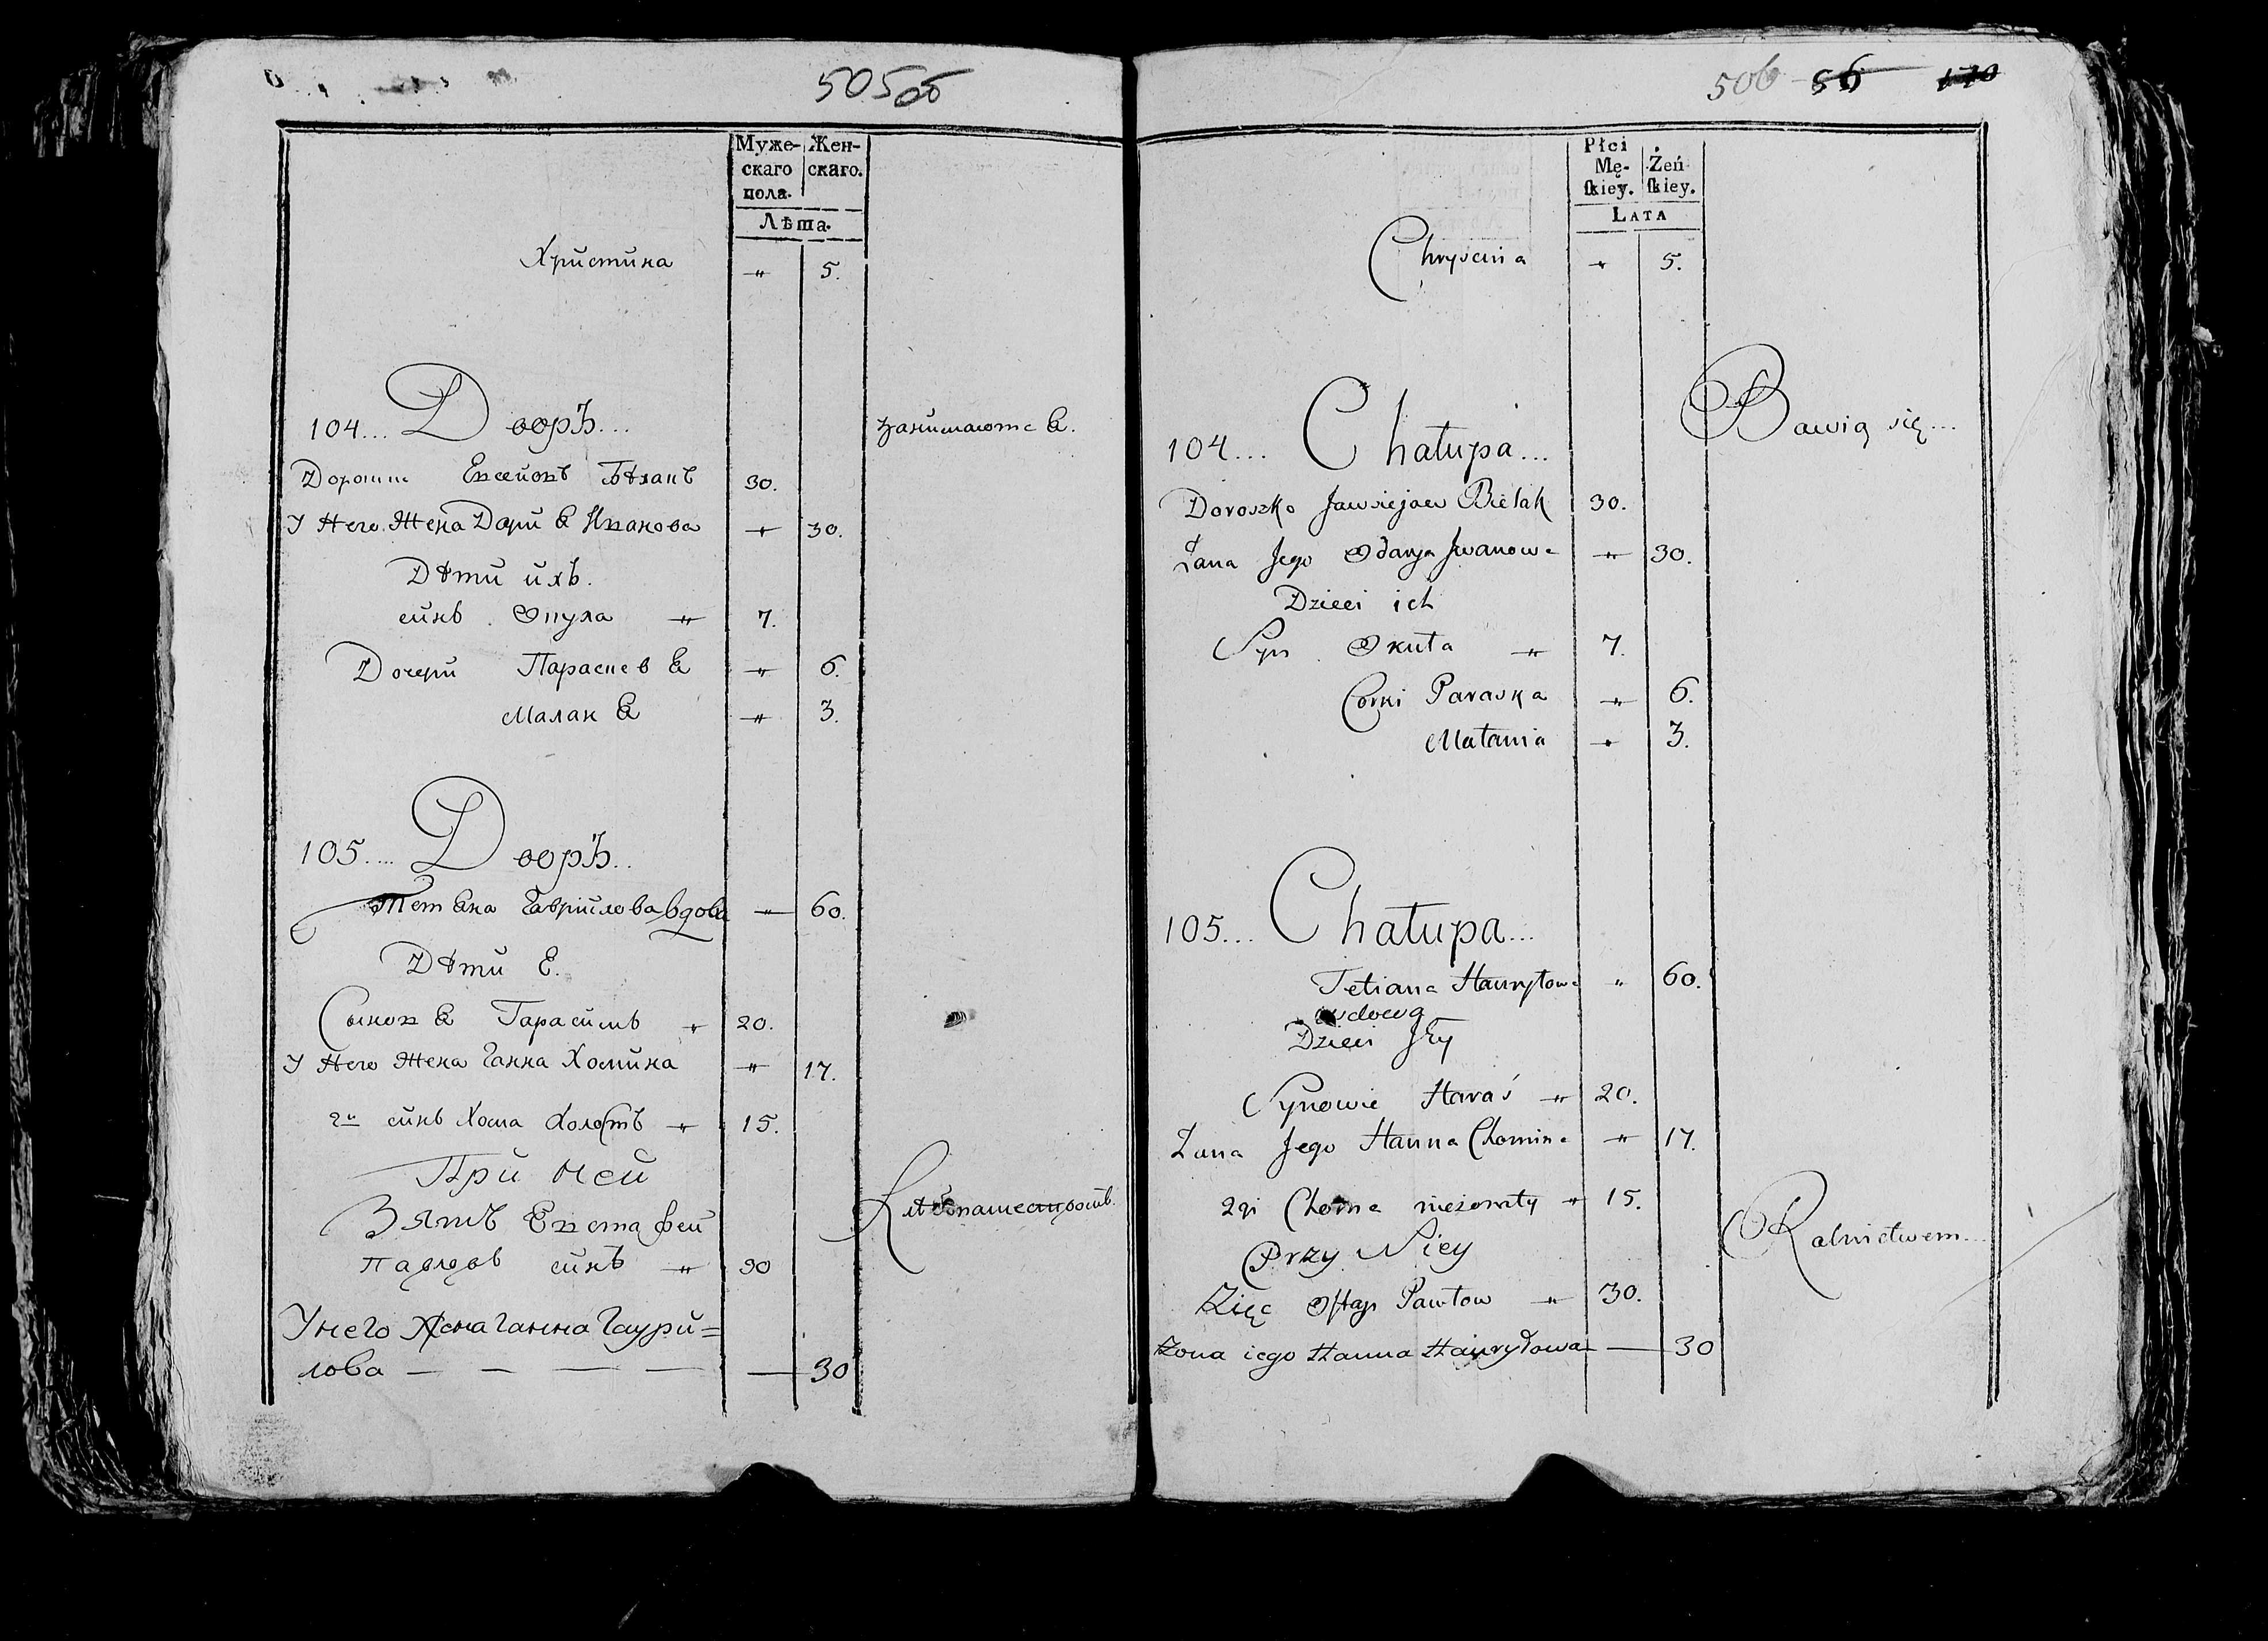 505об
Муже-
скаго
пола.
Жен-
скаго.
Лѣта.
Христина " 5.
104... Дворъ...
занимаются.
Дорошъ Евсеювъ Бѣлакъ 30.
У Него Жена Дария Иванова " 30.
Дѣти ихъ.
сынъ Окула " 7.
Дочери Параскевия " 6.
Малания " 3.
105.... Дворъ..
Тетяна Гаврилова вдова " 60.
Дѣти Е.
Сыновя Гарасимъ " 20.
У Него Жена Ганна Хомина " 17.
2й сынъ Хома Холостъ " 15.
При Ней
Хлѣбопашествомъ.
Зять Евстафей
Павловъ сынъ " 30
У него Жена Ганна Гаври=
лова — — — — 30
506 56
Płci
Mę-
skiey.
Żeń
skiey.
LATA
Chryscina " 5.
104... Chałupa...
Bawią się...
Doroszko Jawsiejow Bielak 30.
Żana Jego Odarya Iwanowa " 30.
Dzieci ich
Syn Okuła " 7.
Corki Paraska " 6.
Małania " 3.
105... Chałupa...
Tetiana Hauryłowa " 60.
wdowa
Dzieci Jey
Synowie Haraś " 20.
Żana Jego Hanna Chomina " 17.
2gi Choma nieżonaty " 15.
Przy Niey
Rolnictwem...
Zięc Ostap Pawłow " 30.
Żona iego Hanna Hauryłowa — 30